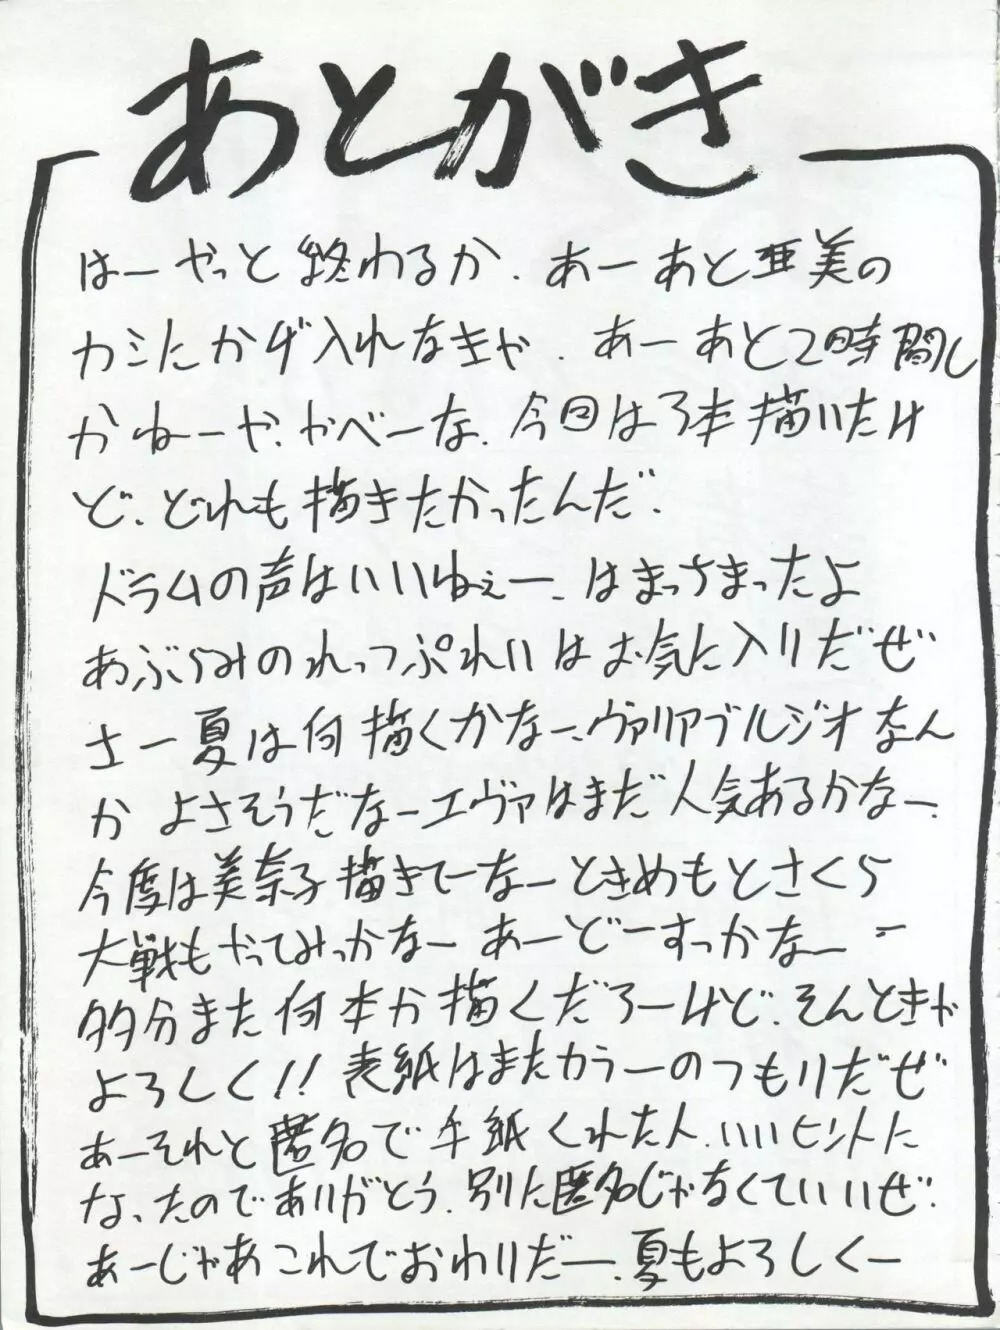 あとがき
はーやっと終わるか．あーあと亜美の
カシにかげ入れなきゃ．あーあと2時間し
かねーや．やべーな．今回は3本描いたけ
ど、どれも描きたかったんだ．
ドラムの声はいいねぇー．はまっちまったよ
あぶらみのれっつぷれいはお気に入りだぜ
さー夏は何描くかなー．ヴァリアブルジオなん
か よさそうだなーエヴァはまだ人気あるかなー．
今度は美奈子描きてーなーときめもとさくら
大戦もやってみっかなー あーどーすっかなー
多分また何本か描くだろーけど、そんときゃ
よろしく!! 表紙はまたカラーのつもりだぜ
あーそれと匿名で手紙くれた人．いいヒントに
なったのでありがとう．別に匿名じゃなくていいぜ．
あーじゃあこれでおわりだー．夏もよろしくー